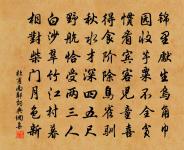 錦里先生烏角巾
園收芋栗不全貧
慣看賓客兒童喜
得食階除鳥雀馴
秋水才深四五尺
野航恰受兩三人
白沙翠竹江村暮
相對柴門月色新
杜甫南鄰詞典網